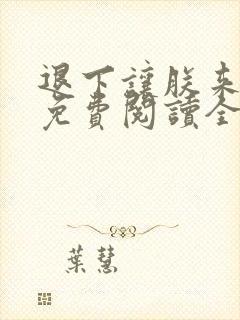 退下讓朕來
免費閱讀全
葉慧